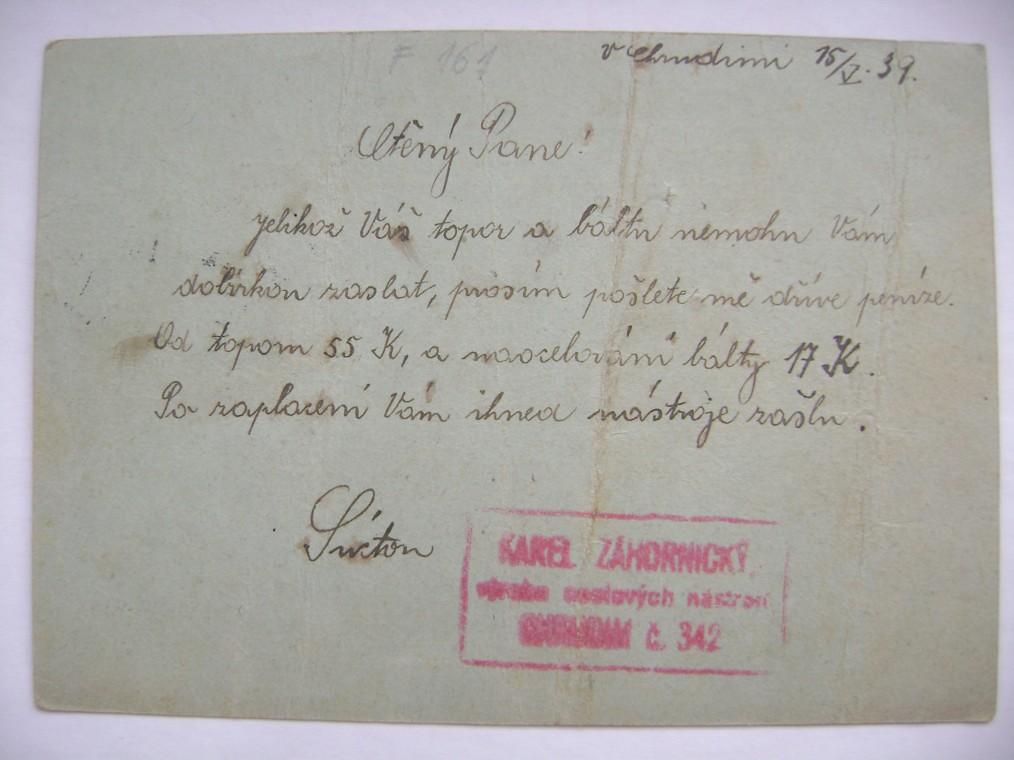 F 161
v Chrudimi 15/V. 39.
Ctěný Pane!
jelikož Váš topor a báltu nemohu Vám
dobírkou zaslat, prosím pošlete mě dříve peníze.
Od toporu 55 K, a naocelování bálty 17 K.
Po zaplacení Vám ihned nástroje zašlu.
S úctou
KAREL ZÁHORNICKÝ
výroba ocelových nástrojů
CHRUDIM č. 342